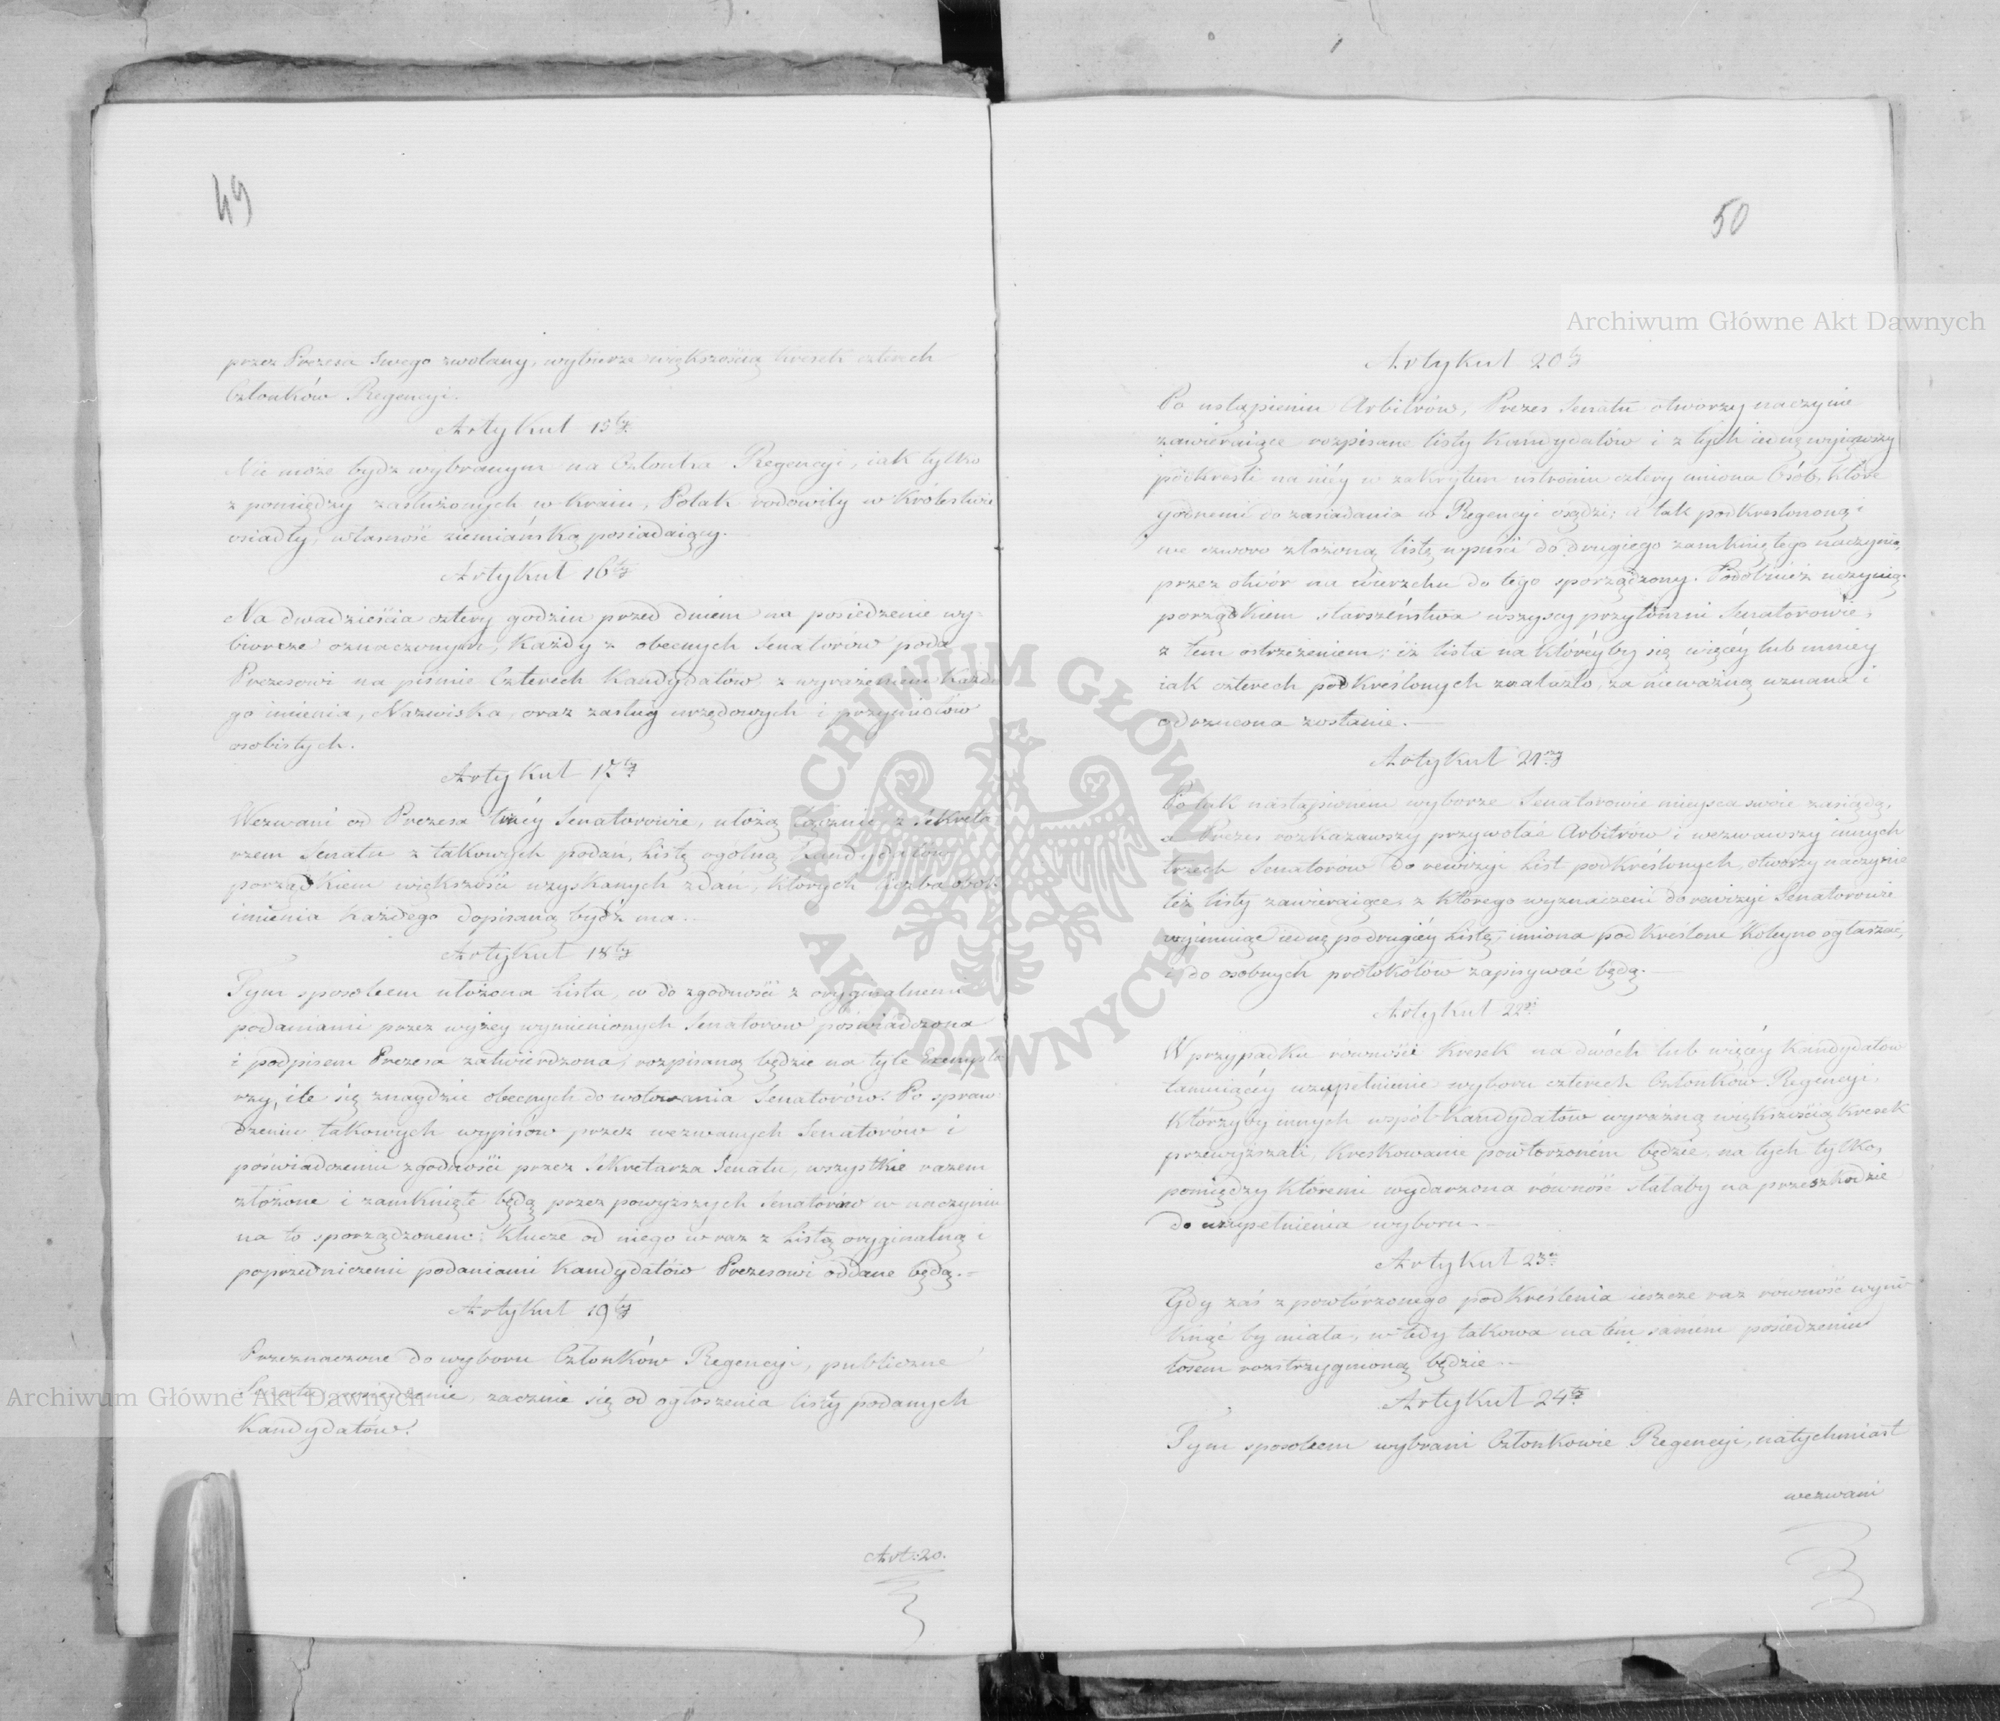 49
przez Prezesa Swego zwołany, wybierze większością kresek czterech
Członków Regencyi.
Artykuł 15ty
Nie może bydź wybranym na Członka Regencyi, iak tylko
z pomiędzy zasłużonych w kraiu, Polak rodowity w Królestwie
osiadły, własność ziemiańską posiadaiący.
Artykuł 16ty
Na dwadzieścia cztery godzin przed dniem na posiedzenie wy-
borcze oznaczonym, każdy z obecnych Senatorów poda
Prezesowi na piśmie Czterech Kandydatów, z wyrażeniem każde
go imienia, Nazwiska, oraz zasług urzędowych i przymiotów
osobistych.
Artykuł 17ty
Wezwani od Prezesa trzéy Senatorowie, ułożą łącznie z Sekreta
rzem Senatu z takowych podań, Listę ogólną Kandydatów
porządkiem większości uzyskanych zdań, których liczba obok
imienia każdego dopisaną bydź ma.
Artykuł 18ty
Tym sposobem ułożona Lista, co do zgodności z oryginalnemi
podaniami przez wyżey wymienionych Senatorów poświadczona
i podpisem Prezesa zatwierdzona, rozpisaną będzie na tyle Exempla
rzy, ile się znaydzie obecnych do wotowania Senatorów. Po spraw-
dzeniu takowych wypisów przez wezwanych Senatorów i
poświadczeniu zgodności przez Sekretarza Senatu, wszystkie razem
złożone i zamknięte będą przez powyższych Senatorów w naczyniu
na to sporządzonem: Klucze od niego wraz z Listą oryginalną i
poprzedniczemi podaniami Kandydatów Prezesowi oddane będą.
Artykuł 19ty
Przeznaczone do wyboru Członków Regencyi, publiczne
Senatu posiedzenie, zacznie się od ogłoszenia listy podanych
Kandydatów.
Art: 20.
50
Artykuł 20ty
Po ustąpieniu Arbitrów, Prezes Senatu otworzy naczynie
zawieraiące rozpisane listy Kandydatów i z tych iednę wyiąwszy
podkreśli na niéy w zakrytem ustroniu cztery imiona Osób, które
godnemi do zasiadania w Regencyi osądzi; a tak podkreśloną i
we czworo złożoną listę wpuści do drugiego zamkniętego naczynia,
przez otwór na wierzchu do tego sporządzony. Podobnież uczynią
porządkiem starszeństwa wszyscy przytomni Senatorowie,
z tem ostrzeżeniem; iż lista na któréyby się więcéy lub mniey
iak czterech podkreślonych znalazło, za nieważną uznana i
odrzucona zostanie.
Artykuł 21szy
Po tak nastąpionem wyborze Senatorowie mieysca swoie zasiędą,
a Prezes rozkazawszy przywołać Arbitrów i wezwawszy innych
trzech Senatorów do rewizyi List podkreślonych, otworzy naczynie
też listy zawieraiące, z którego wyznaczeni do rewizyi Senatorowie
wyimuiąc iednę po drugiéy Listę, imiona podkreślone koleyno ogłaszać,
i do osobnych protokółów zapisywać będą.
Artykuł 22gi
W przypadku równości kresek na dwóch lub więcéy Kandydatów
tamuiącéy uzupełnienie wyboru czterech Członków Regencyi,
którzyby innych współ-Kandydatów wyraźną większością kresek
przewyższali, kreskowanie powtórzoném będzie, na tych tylko,
pomiędzy któremi wydarzona równość stałaby na przeszkodzie
do uzupełnienia wyboru.
Artykuł 23ci
Gdy zaś z powtórzonego podkreślenia ieszcze raz równość wyni-
knąć by miała, wtedy takowa na tém samem posiedzeniu
losem rozstrzygnioną będzie.
Artykuł 24ty
Tym sposobem wybrani Członkowie Regencyi, natychmiast
wezwani
Archiwum Główne Akt Dawnych
Archiwum Główne Akt Dawnych
ARCHIWUM GŁÓWNE AKT DAWNYCH